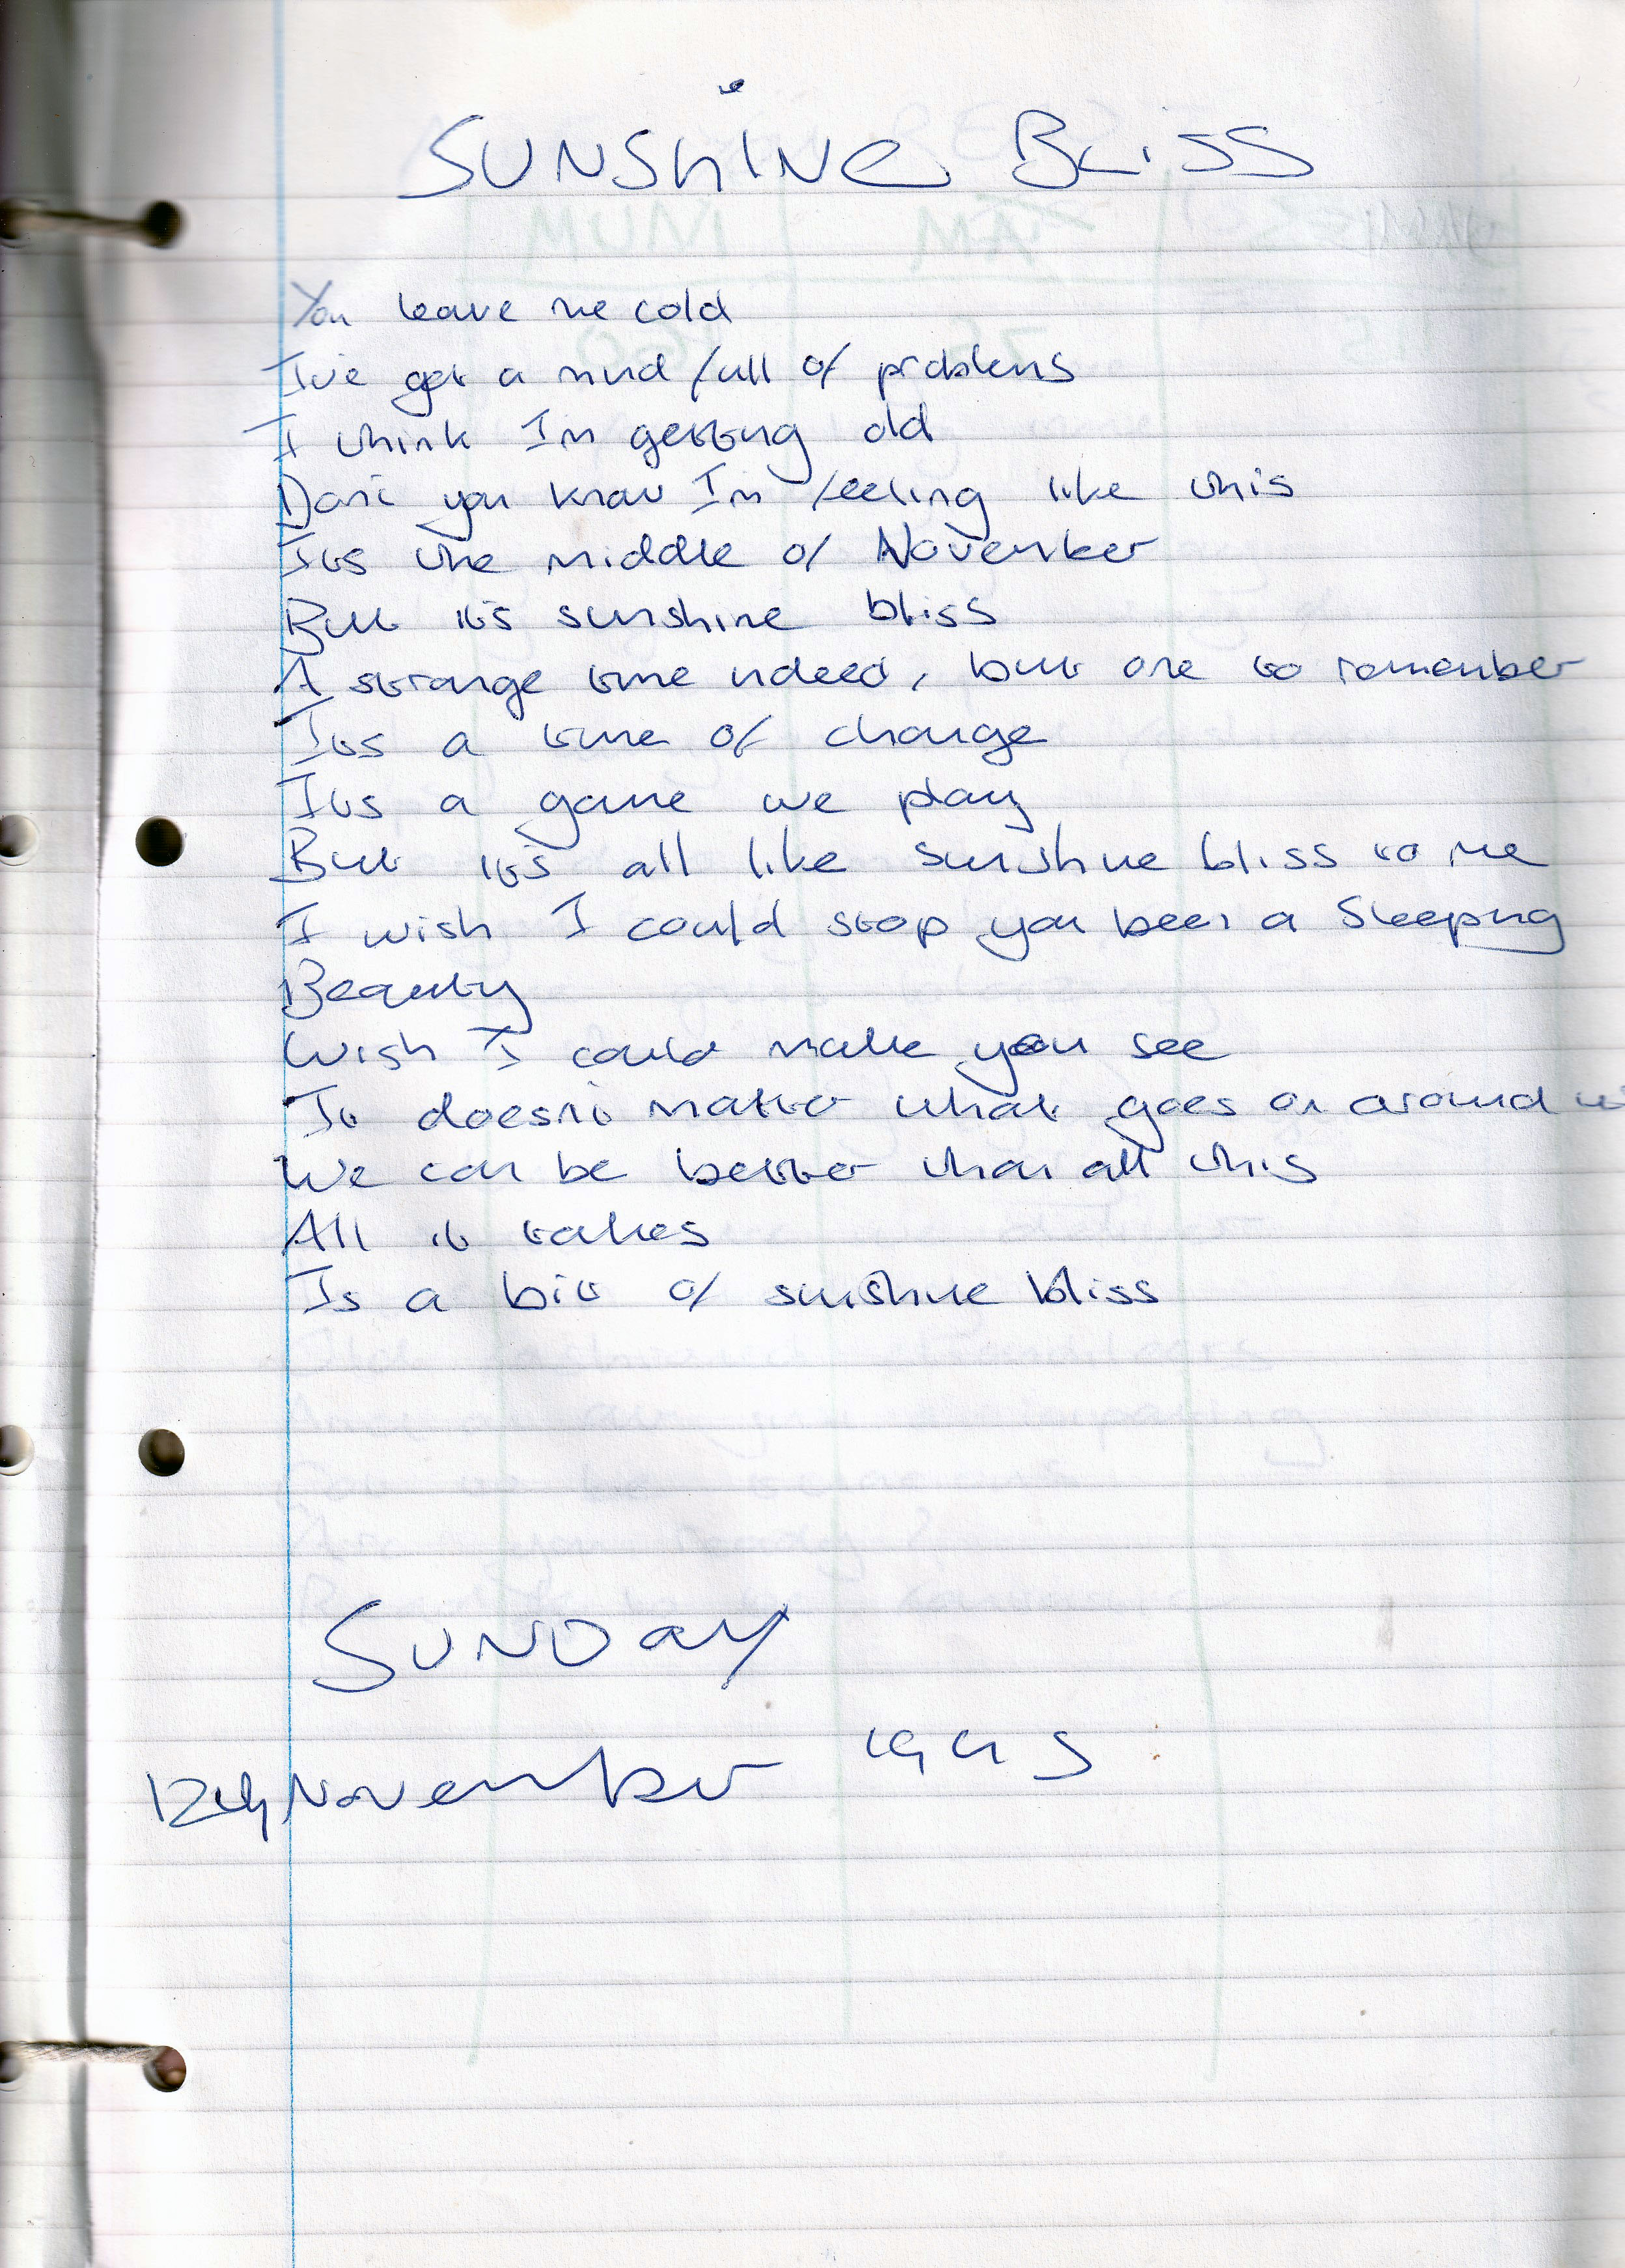 SUNSHINE BLISS
You leave me cold
I've got a mind full of problems
I think Im getting old
Don't you know Im feeling like this
Its the middle of November
But it's sunshine bliss
A strange time indeed, but one to remember
Its a time of change
Its a game we play
But it's all like sunshine bliss to me
I wish I could stop you been a Sleeping
Beauty
Wish I could make you see
It doesn't matter what goes on around us
We can be better than all this
All it takes
Is a bit of sunshine bliss
SUNDAY
12th November 1995
MUM